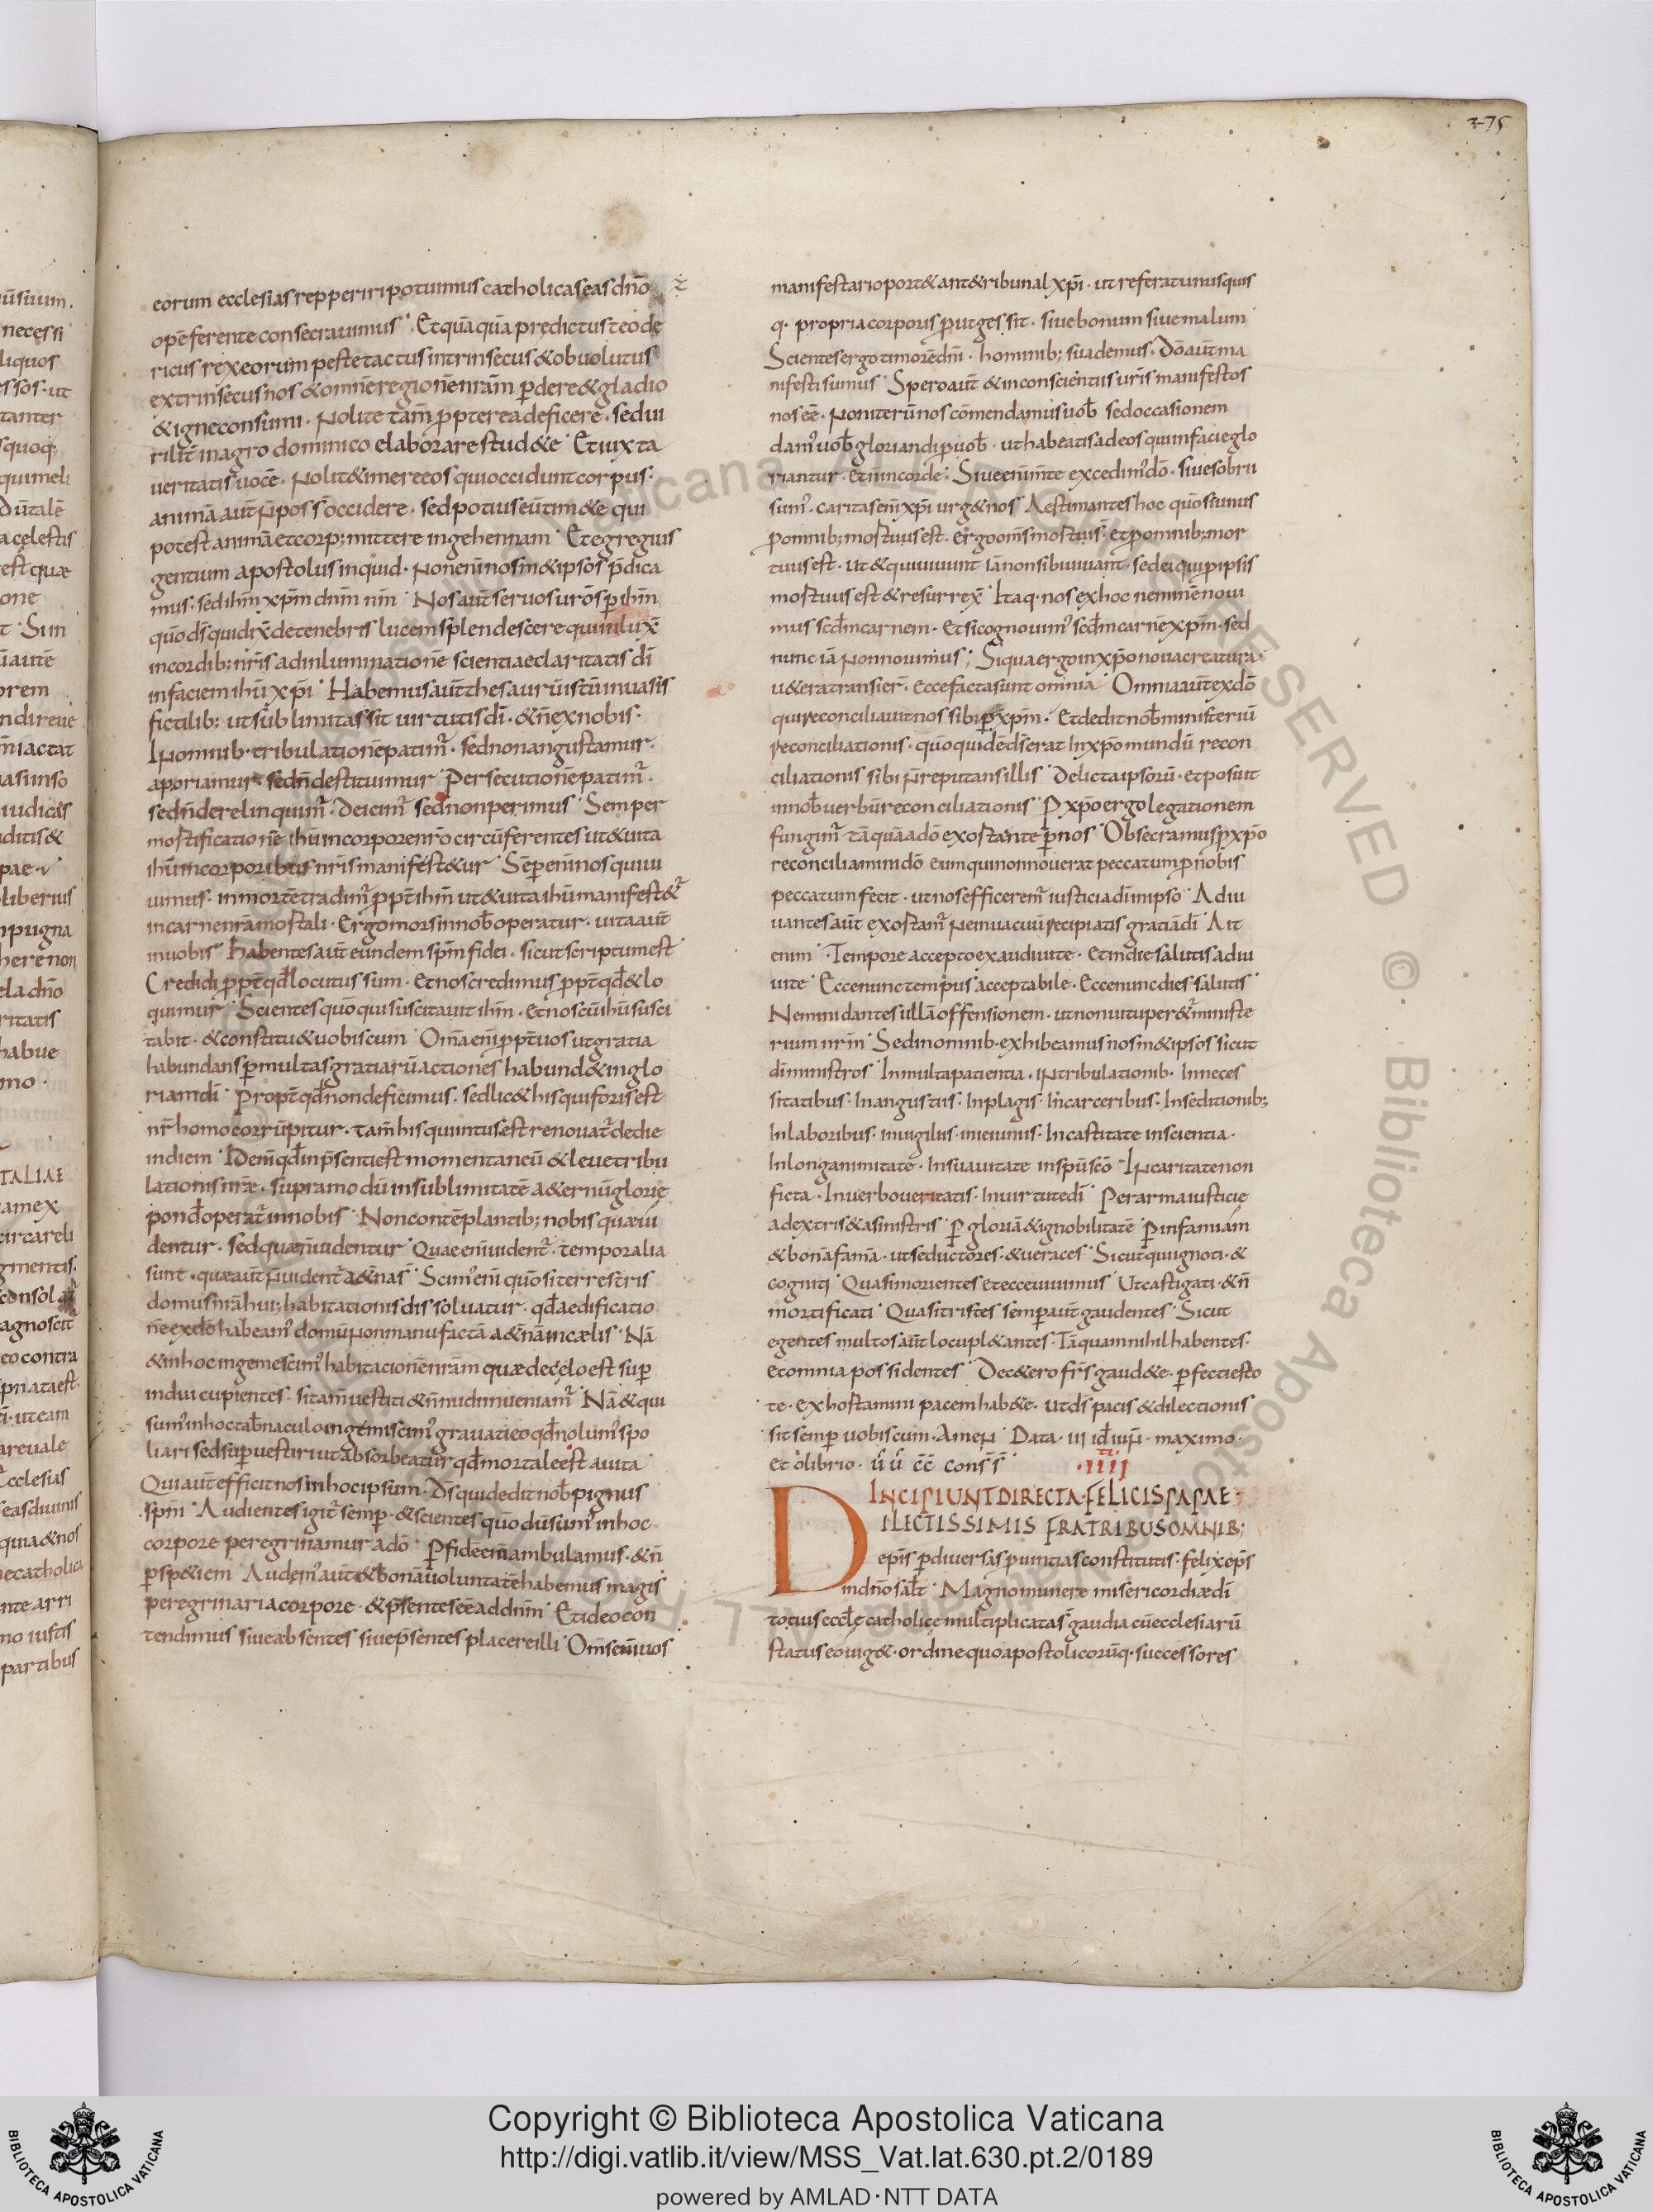 275
eorum ecclesias repperiri potuimus catholicas eas dn̄o
opē ferente consecrauimus. Et quāquā predictus teode
ricus rex eorum peste tactus intrinsecus & obuolutus
extrinsecus nos & omnē regionē nr̄am ꝑdere & gladio
& igne consumi. Nolite tam̄ ꝓpterea deficere. sed uii
rilit̄ in agro dominico elaborare stud&e. Et iuxta
ueritatis uocē. Nolit& imere eos qui occidunt corpus.
animā aut̄ n̄ poss̄ occidere. sed potius eū tim&e qui
potest animā et corp; mittere in gehennam. Et egregius
gentium apostolus inquid. Non eni nosm&ipsos p̄dica
mus. sed ihm̄ xp̄m dn̄m nr̄m. Nos aut̄ seruos uros ꝑ ihm̄
quō ds̄ qui dix̄ de tenebris lucem splendescere qui inlux̄
in cordib; nr̄is ad inluminationē scientiae claritatis dī
in faciem ihū xp̄i. Habemus aut̄ thesaurū istū in uasis
fictilib; ut sublimitas sit uirtutis dī. & n̄ ex nobis.
In omnib. tribulationē patimr̄. sed non angustamur.
aporiamur. sed n̄ destituimur. Persecutionē patimr̄.
sed n̄ derelinquimr̄. Deicimr̄ sed non perimus. Semper
mortificationē ihū in corpore nr̄o circūferentes ut & uita
ihū in corporibus nr̄is manifest&ur. Sēꝑ eni nos qui uiu
uimus. in mortē tradimr̄ ꝓpt̄ ihm̄ ut & uita ihū manifest&r̄
in carne nr̄a mortali. Ergo mors in nob̄ operatur. uita aut̄
in uobis. Habentes aut̄ eundem spm̄ fidei. sicut scriptum est.
Credidi ꝓpt̄ qd̄ locutus sum. Et nos credimus ꝓpt̄ qd̄ & lo
quimur. Scientes quō qui suscitauit ihm̄. Et nos cū ihū susci
tabit. & constitu& uobiscum. Om̄a eni ꝓpt̄ uos ut gratia
habundans ꝑ multas gratiarū actiones habund& in glo
riam dī. Propt̄ qd̄ non deficimus. sed lic& his qui foris est
nr̄ homo corrūpitur. tam̄ his qui intus est renouat̄ de die
in diem. Id eni qd̄ in p̄senti est momentaneū & leue tribu
lationis nr̄ae. supra modū in sublimitatē a&ernū glorię
pond̄ operat̄ in nobis. Non contēplantib; nobis quae ui
dentur. sed quae n̄ uidentur. Quae eni uident̄. temporalia
sunt. quae aut̄ n̄ uident̄ a&n̄as. Scim' eni quō si terrestris
domus nr̄a hui; habitationis dissoluatur. qd̄ aedificatio
nē ex dō habeam' domū non manu factā a&n̄ā in caelis. Nā
& in hoc ingemescim' habitacionē nr̄am quae de cęlo est suꝑ
indui cupientes. si tam̄ uestiti & n̄ nudi inueniamr̄. Nā & qui
sum' in hoc tab̄naculo ingemiscim' grauati eo qd̄ nolum' spo
liari sed suꝑuestiri ut absorbeatur qd̄ mortale est a uita.
Qui aut̄ efficit nos in hoc ipsum. Ds̄ qui dedit nob̄ pignus
spm̄. Audientes igit̄ semꝑ. & scientes quō dū sum' in hoc
corpore peregrinamur a dō. P fidē eni ambulamus. & n̄
ꝑ spe&iem. Audem' aut̄ & bonā uoluntatē habemus magis
peregrinari a corpore. & p̄sentes eē ad dn̄m. Et ideo con
tendimus siue absentes siue p̄sentes placere illi. Om̄s eni nos
manifestari oport& ant& ribunal xp̄i. ut referat unusquis
q. propria corporis ꝓut gessit. siue bonum siue malum.
Scientes ergo timorē dn̄i. hominib; suademus. Dō aut̄ ma
nifesti sumus. Spero aut̄ & in conscientiis ur̄is manifestos
nos eē. Non iterū nos cōmendamus uob̄ sed occasionem
dam' uob̄ gloriandi ꝓ uob̄. ut habeatis ad eos qui in facie glo
riantur. et n̄ in corde. Siue eni m̄te excedim' dō. siue sobrii
sum'. caritas eni xp̄i urg& nos. Aestimantes hoc quō si unus
ꝓ omnib; mortuus est. ergo om̄s mortui s̄. et ꝓ omnib; mor
tuus est. ut & qui uiuunt iā non sibi uiuant. sed ei qui ꝓ ipsis
mortuus est & resurrex̄. Itaq. nos ex hoc neminē noui
mus scd̄m carnem. Et si cognouim' scd̄m carnē xp̄m. sed
nunc iā non nouimus; Si qua ergo in xp̄o noua creatura.
u&era transier̄. ecce facta sunt omnia. Omnia aut̄ ex dō
qui reconciliauit nos sibi ꝑ xp̄m. Et dedit nob̄ ministeriū
reconciliationis. quō quidē ds̄ erat in xp̄o mundū recon
ciliationis sibi n̄ reputans illis. Delicta ipsorū. et posuit
in nob̄ uerbū reconciliationis. P xp̄o ergo legationem
fungimr̄ tāquā a dō exortante ꝑ nos. Obsecramus ꝑ xp̄o
reconciliamini dō eum qui non nouerat peccatum ꝓ nobis
peccatum fecit. ut nos efficeremr̄ iusticia dī in ipso. Adiu
uantes aut̄ exortamr̄ ne in uacuū recipiatis gratiā dī. Ait
enim. Tempore accepto exaudiui te. Et in die salutis adiu
ui te. Ecce nunc tempus acceptabile. Ecce nunc dies salutis.
Nemini dantes ullā offensionem. ut non uituper&r̄ ministe
rium nr̄m. Sed in omnib. exhibeamus nosm&ipsos sicut
dī ministros. In multa patientia. In tribulationib. In neces
sitatibus. In angustiis. In plagis. In carceribus. In seditionib;
In laboribus. in uigiliis. in ieiuniis. In castitate in scientia.
In longanimitate. In suauitate in spū scō. In caritate non
ficta. In uerbo ueritatis. In uirtute dī. Per arma iusticię
a dextris & a sinistris. P gloriā & ignobilitatē. P infamiam
& bonā famā. ut seductores. & ueraces. Sicut qui ignoti. &
cogniti. Quasi morientes et ecce uiuimus. Ut castigati. & n̄
mortificati. Quasi tristes semꝑ aut̄ gaudentes. Sicut
egentes multos aut̄ locupl&antes. Tāquam nihil habentes.
et omnia possidentes. De c&ero fr̄s. gaud&e. ꝑfecti esto
te. exhortamini pacem hab&e. ut ds̄ pacis & dilectionis
sit semꝑ uobiscum. Amen. Data. III id̄ iun̄. maximo.
et olibrio. ū ū c̄c̄ cons̄s̄.
.IIII
INCIPIUNT DIRECTA. FELICIS PAPAE.
DILECTISSIMIS FRATRIBUS OMNIB;
ep̄is ꝑ diuersas ꝓuintias constitutis. felix ep̄s
in dn̄o sal̄t. Magno munere misericordiae dī
totius eccl̄ę catholicę multiplicata s̄ gaudia cū ecclesiarū
status eo uig&. ordine quo apostolicorūq. successores
Copyright © Biblioteca Apostolica Vaticana
http://digi.vatlib.it/view/MSS_Vat.lat.630.pt.2/0189
powered by AMLAD·NTT DATA
BIBLIOTECA APOSTOLICA VATICANA
BIBLIOTECA APOSTOLICA VATICANA